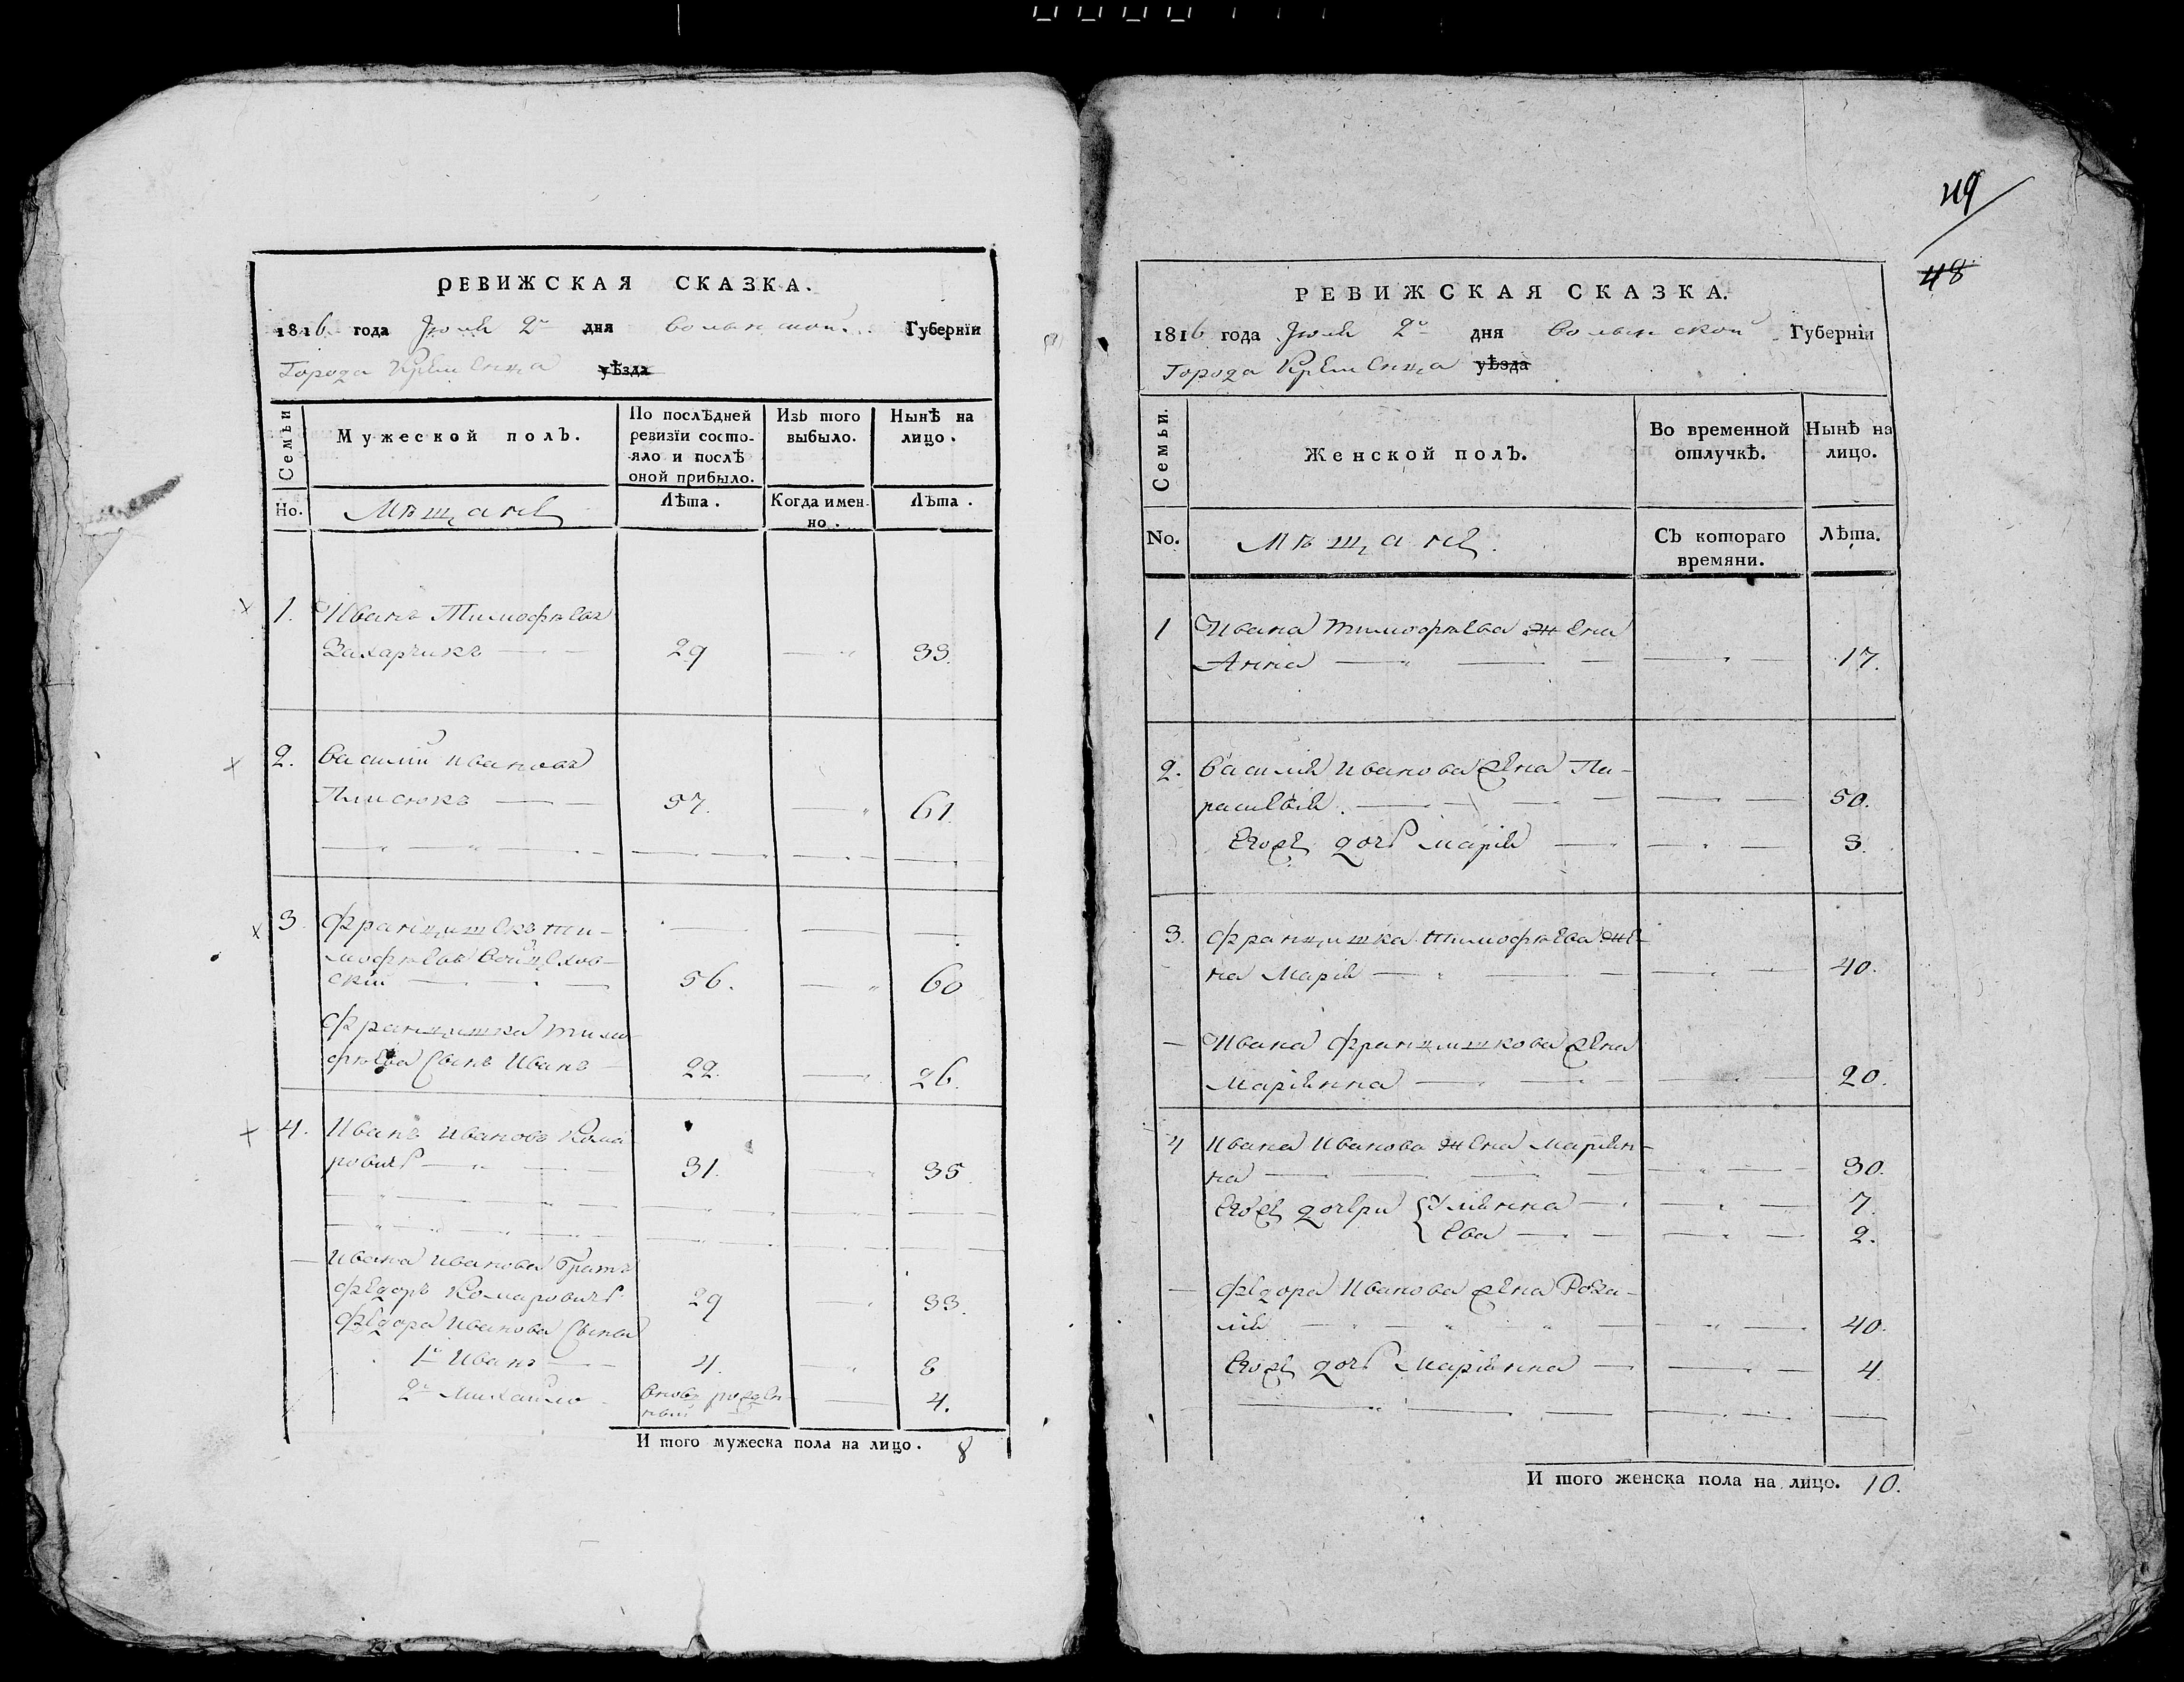 49
48
РЕВИЖСКАЯ СКАЗКА.
1816 года Июля 2го дня Волынской Губернїи
Города Кременца уѣзда
Семьи
Мужеской полЪ.
По послѢдней ревизїи состояло и послѢ оной прибыло.
ИзЪ того выбыло.
НынѢ на лицо.
Но.
Мѣщане
ЛѢта.
Когда именно.
ЛѢта.
1. Иванъ Тимофѣевъ
Захарчикъ 29 33.
2. Василий Ивановъ
57. 61.
3 Францишекъ Ти-
мофѣевъ Войцехов-
ский 56. 60
Францишка Тимо-
фѣева Сынъ Иванъ 22. 26.
4. Иванъ Ивановъ Кома
ровичь 31. 35.
Ивана Иванова Братъ
Федоръ Комаровичь 29 33.
Федора Иванова Сынья
1й Иванъ 4. 8
2й Михайло вновь рожден-
ный 4.
И того мужеска пола на лицо. 8
РЕВИЖСКАЯ СКАЗКА.
1816 года Июля 2го дня Волынской Губернїи
Города Кременца уѣзда
Семьи.
Женской полЪ.
Во временной отлучкѢ.
НынѢ на лицо.
No.
Мѣщане.
СЪ котораго времяни.
ЛѢта.
1 Ивана Тимофѣева жена
Анна 17.
2. Василия Иванова жена Па-
раскевия 50.
Егоже дочь Мария 3.
3. Францишка Тимофѣева же-
на Мария 40.
Ивана Францишкова жена
Мариянна 20.
4 Ивана Иванова жена Мариян-
на 30.
Егоже дочери Улиянна 7.
Ева 2.
Федора Иванова жена Роза-
лия 40.
Егоже дочь Мариянна 4
И того женска пола на лицо. 10.